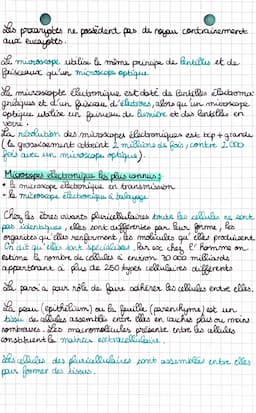 Les procaryotes ne possèdent pas de noyau contrairement
aux eucaryotes.
Le microscope utilise le même principe de lentilles et de
faisceaux qu'un microscope optique.
Le microscope électronique est doté de lentilles électroma-
gnétiques et d'un faisceau d'électrons, alors qu'un microscope
optique utilise un faisceau de lumière et des lentilles en
verre.
La résolution des microscopes électroniques est bcp + grande
(le grossissement atteint 2 millions de fois, contre 2 000
fois avec un microscope optique).
Microscopes électroniques les plus connus :
• le microscope électronique en transmission
• le microscope électronique à balayage
Chez les êtres vivants pluricellulaires toutes les cellules ne sont
pas identiques, elles sont différentes par leur forme, les
organites qu'elles renferment, les molécules qu'elles produisent.
On dit qu'elles sont spécialisées. Par ex chez l'homme on
estime le nombre de cellules à environ 30 000 milliards
appartenant à plus de 250 types cellulaires différents
La paroi a pour rôle de faire adhérer les cellules entre elles.
La peau (épithélium) ou la feuille (parenchyme) est un
tissu de cellules assemblées entre elles en couches plus ou moins
nombreuses. Les macromolécules présente entre les cellules
constituent la matrice extracellulaire.
Les cellules des pluricellulaires sont assemblées entre elles
pour former des tissus.